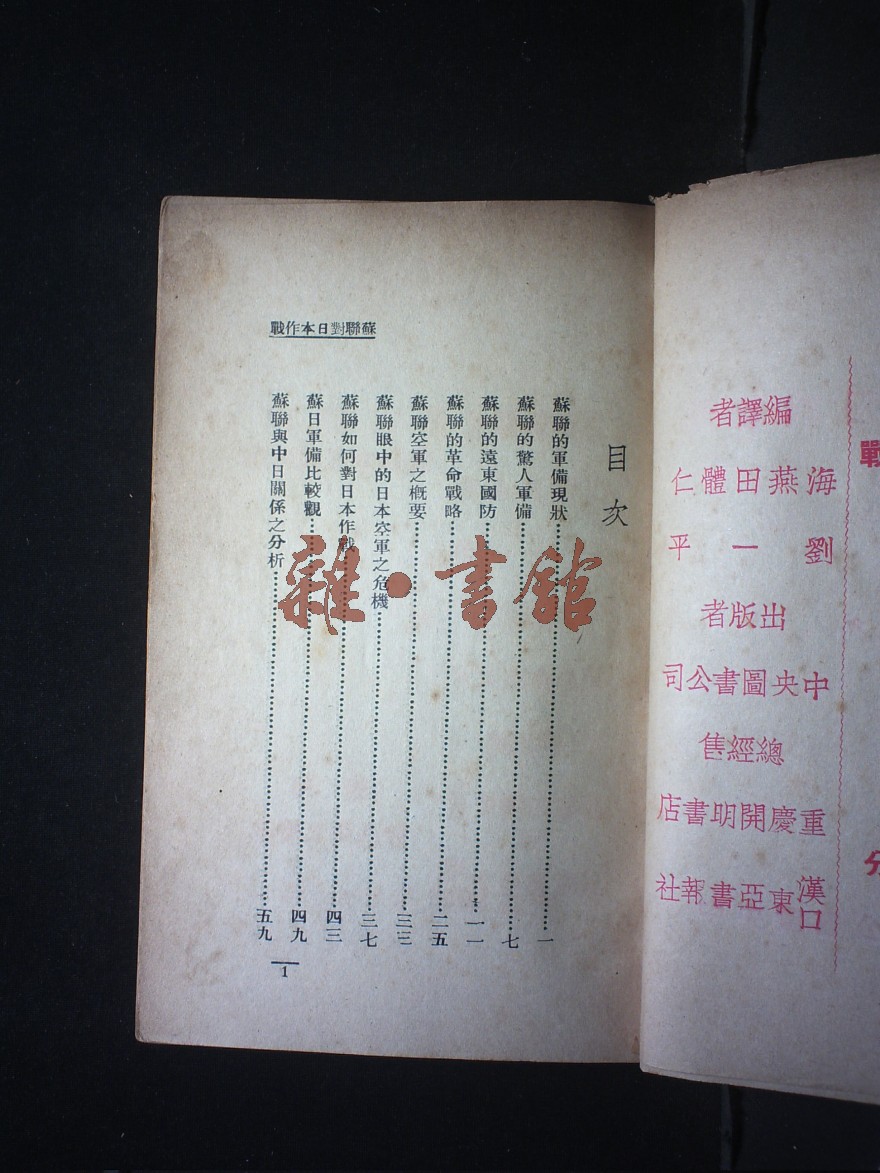 蘇聯對日本作戰
目次
蘇聯的軍備現狀……一
蘇聯的驚人軍備……七
蘇聯的遠東國防……一一
蘇聯的革命戰略……二五
蘇聯空軍之概要……三三
蘇聯眼中的日本空軍之危機……三七
蘇聯如何對日本作戰……四三
蘇日軍備比較觀……四九
蘇聯與中日關係之分析……五九
1
雜·書館
戰
分
編譯者
海燕田體仁
劉一平
出版者
中央圖書公司
總經售
重慶開明書店
漢口東亞書報社